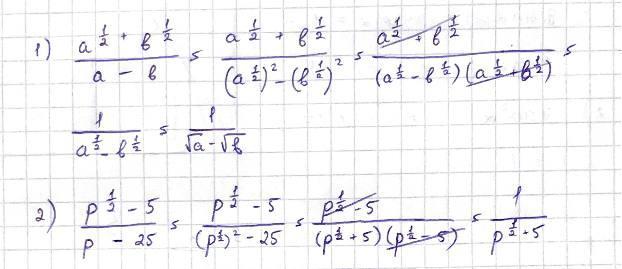 1) \frac{a^{\frac{1}{2}} + b^{\frac{1}{2}}}{a - b} = \frac{a^{\frac{1}{2}} + b^{\frac{1}{2}}}{(a^{\frac{1}{2}})^2 - (b^{\frac{1}{2}})^2} = \frac{a^{\frac{1}{2}} + b^{\frac{1}{2}}}{(a^{\frac{1}{2}} - b^{\frac{1}{2}})(a^{\frac{1}{2}} + b^{\frac{1}{2}})} =
\frac{1}{a^{\frac{1}{2}} - b^{\frac{1}{2}}} = \frac{1}{\sqrt{a} - \sqrt{b}}
2) \frac{p^{\frac{1}{2}} - 5}{p - 25} = \frac{p^{\frac{1}{2}} - 5}{(p^{\frac{1}{2}})^2 - 25} = \frac{p^{\frac{1}{2}} - 5}{(p^{\frac{1}{2}} + 5)(p^{\frac{1}{2}} - 5)} = \frac{1}{p^{\frac{1}{2}} + 5}